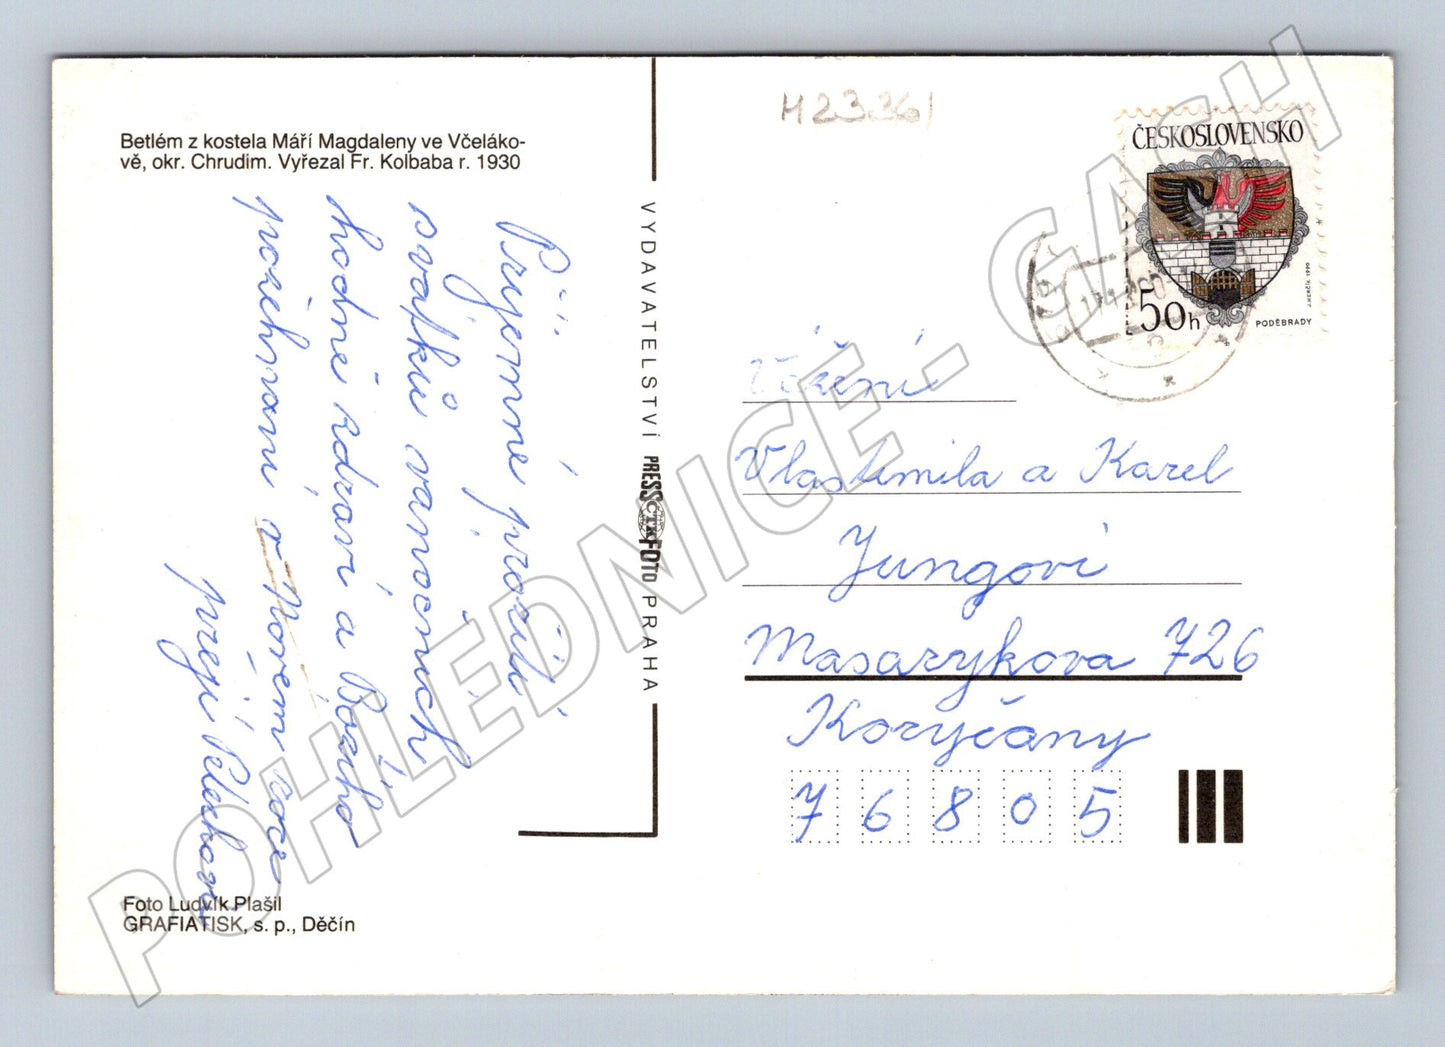 Betlém z kostela Máří Magdaleny ve Včeláko-
vě, okr. Chrudim. Vyřezal Fr. Kolbaba r. 1930
Příjemné prožití
svátků vánočních
hodně zdraví a Božího
požehnání v Novém roce
přejí
Foto Ludvík Plašil
GRAFIATISK, s. p., Děčín
VYDAVATELSTVÍ PRESSFOTO PRAHA
ČTK
H23361
ČESKOSLOVENSKO
50h
PODĚBRADY
J.HERČÍK 1990
Vážení
Vlastimila a Karel
Jungovi
Masarykova 726
Koryčany
76805
POHLEDNICE - GASH